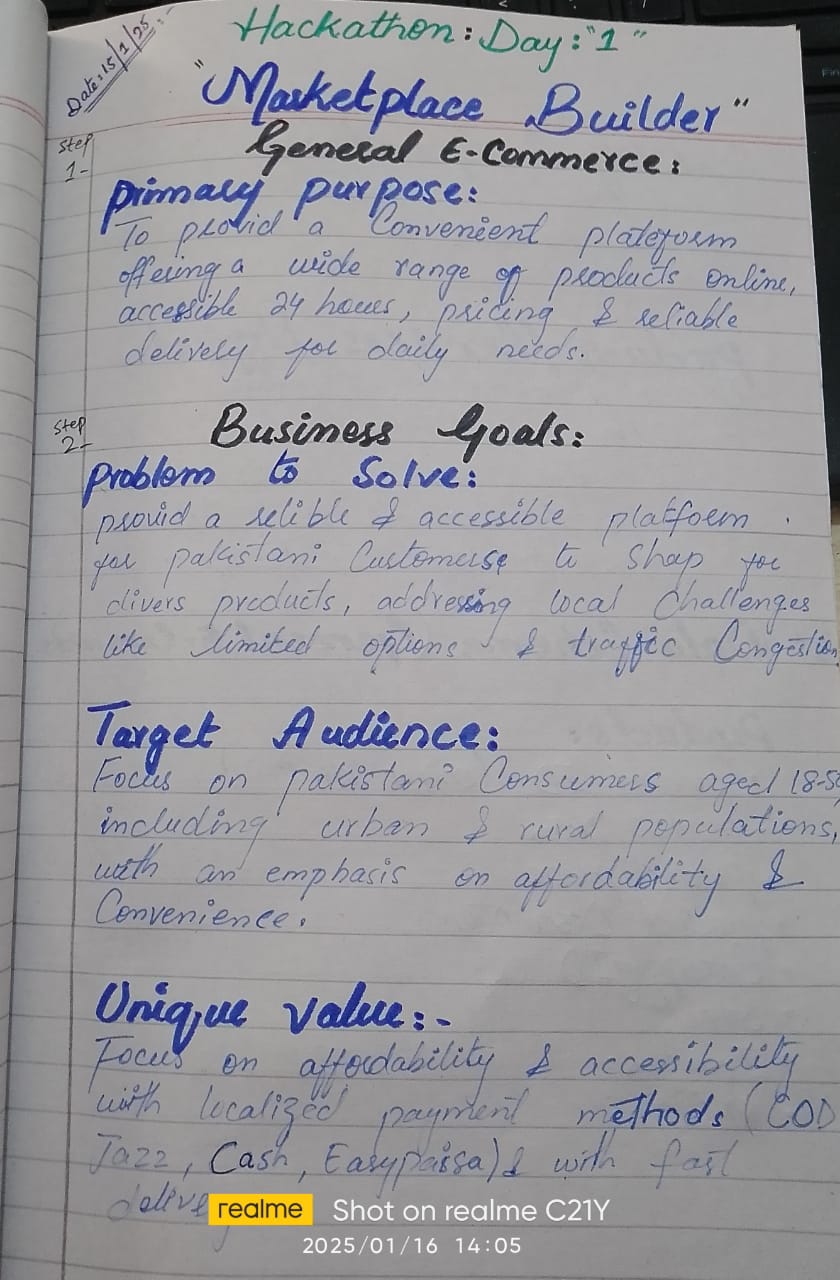 Hackathon: Day:"1"
Date: 15/1/25
"Marketplace Builder"
Step
1-
General E-Commerce:
Primary purpose:
To provid a Convenient plateform
offering a wide range of products online,
accessible 24 hours, pricing & reliable
delively for daily needs.
Step
2-
Business Goals:
Problem to Solve:
provid a relible & accessible platfoem.
for pakistani Customerse to Shap for
divers products, addressing local Challenges
like limited options & traffic Congestion
Target Audience:
Focus on pakistani Consumers aged 18-5
including urban & rural populations,
with an emphasis on affordability &
Convenience.
Unique Value:-
Focus on affordability & accessibility
with localized payment methods (COD
Jazz, Cash, Easypaisa) & with fast
delive
realme Shot on realme C21Y
2025/01/16 14:05